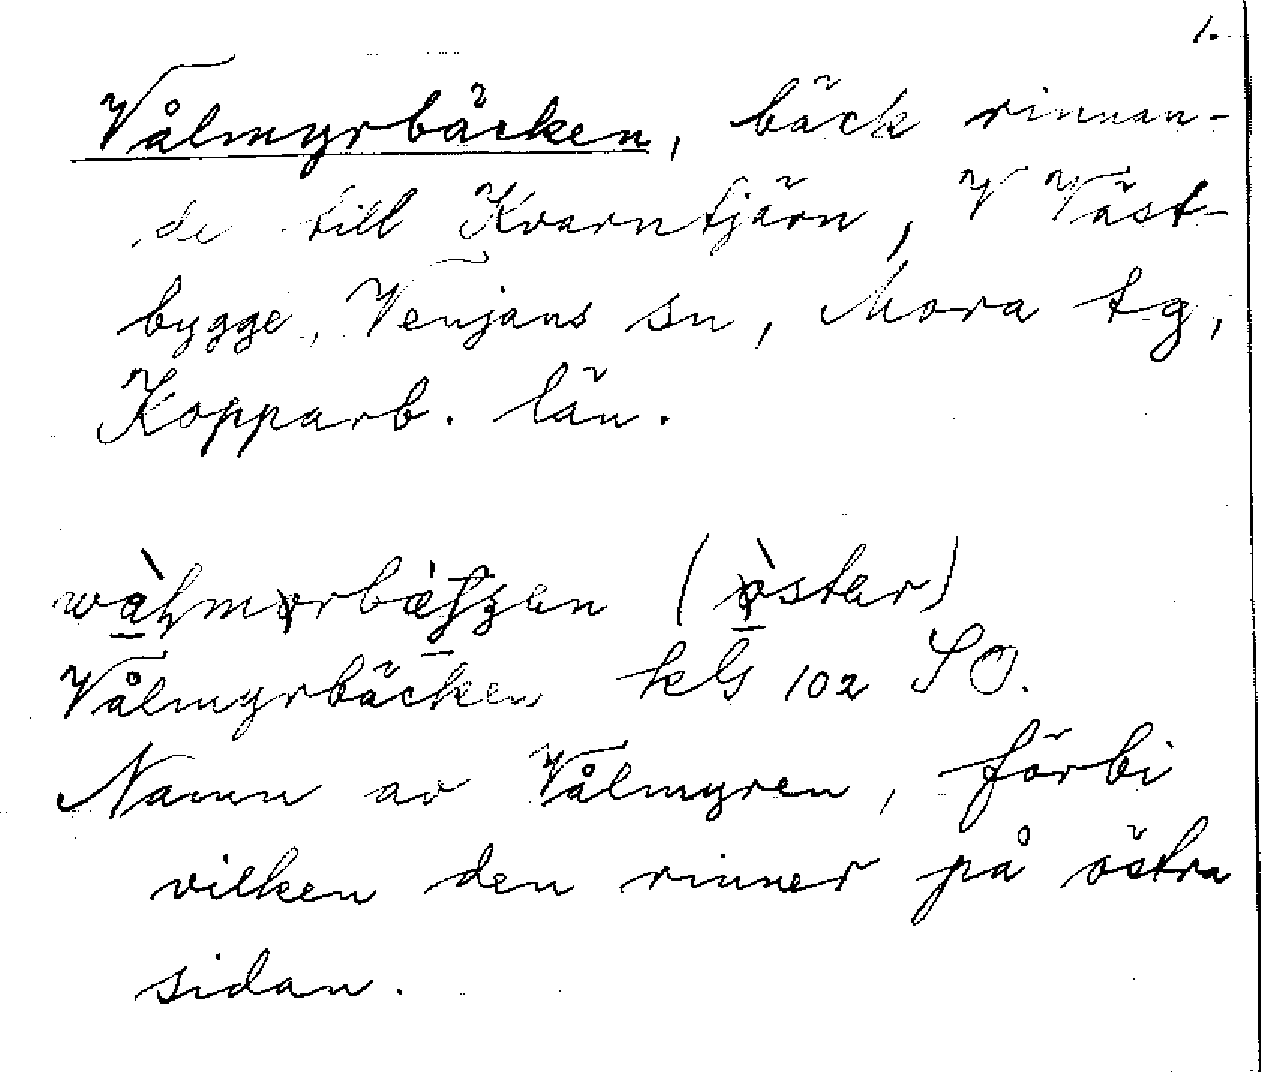 1.
Vålmyrbäcken, bäck rinnan-
de till Kvarntjärn, V Väst-
bygge, Venjans sn, Mora tg,
Kopparb. län.
Vålmyrbäcken kls 102 SO.
Namn av Vålmyren, förbi
vilken den rinner på östra
sidan.